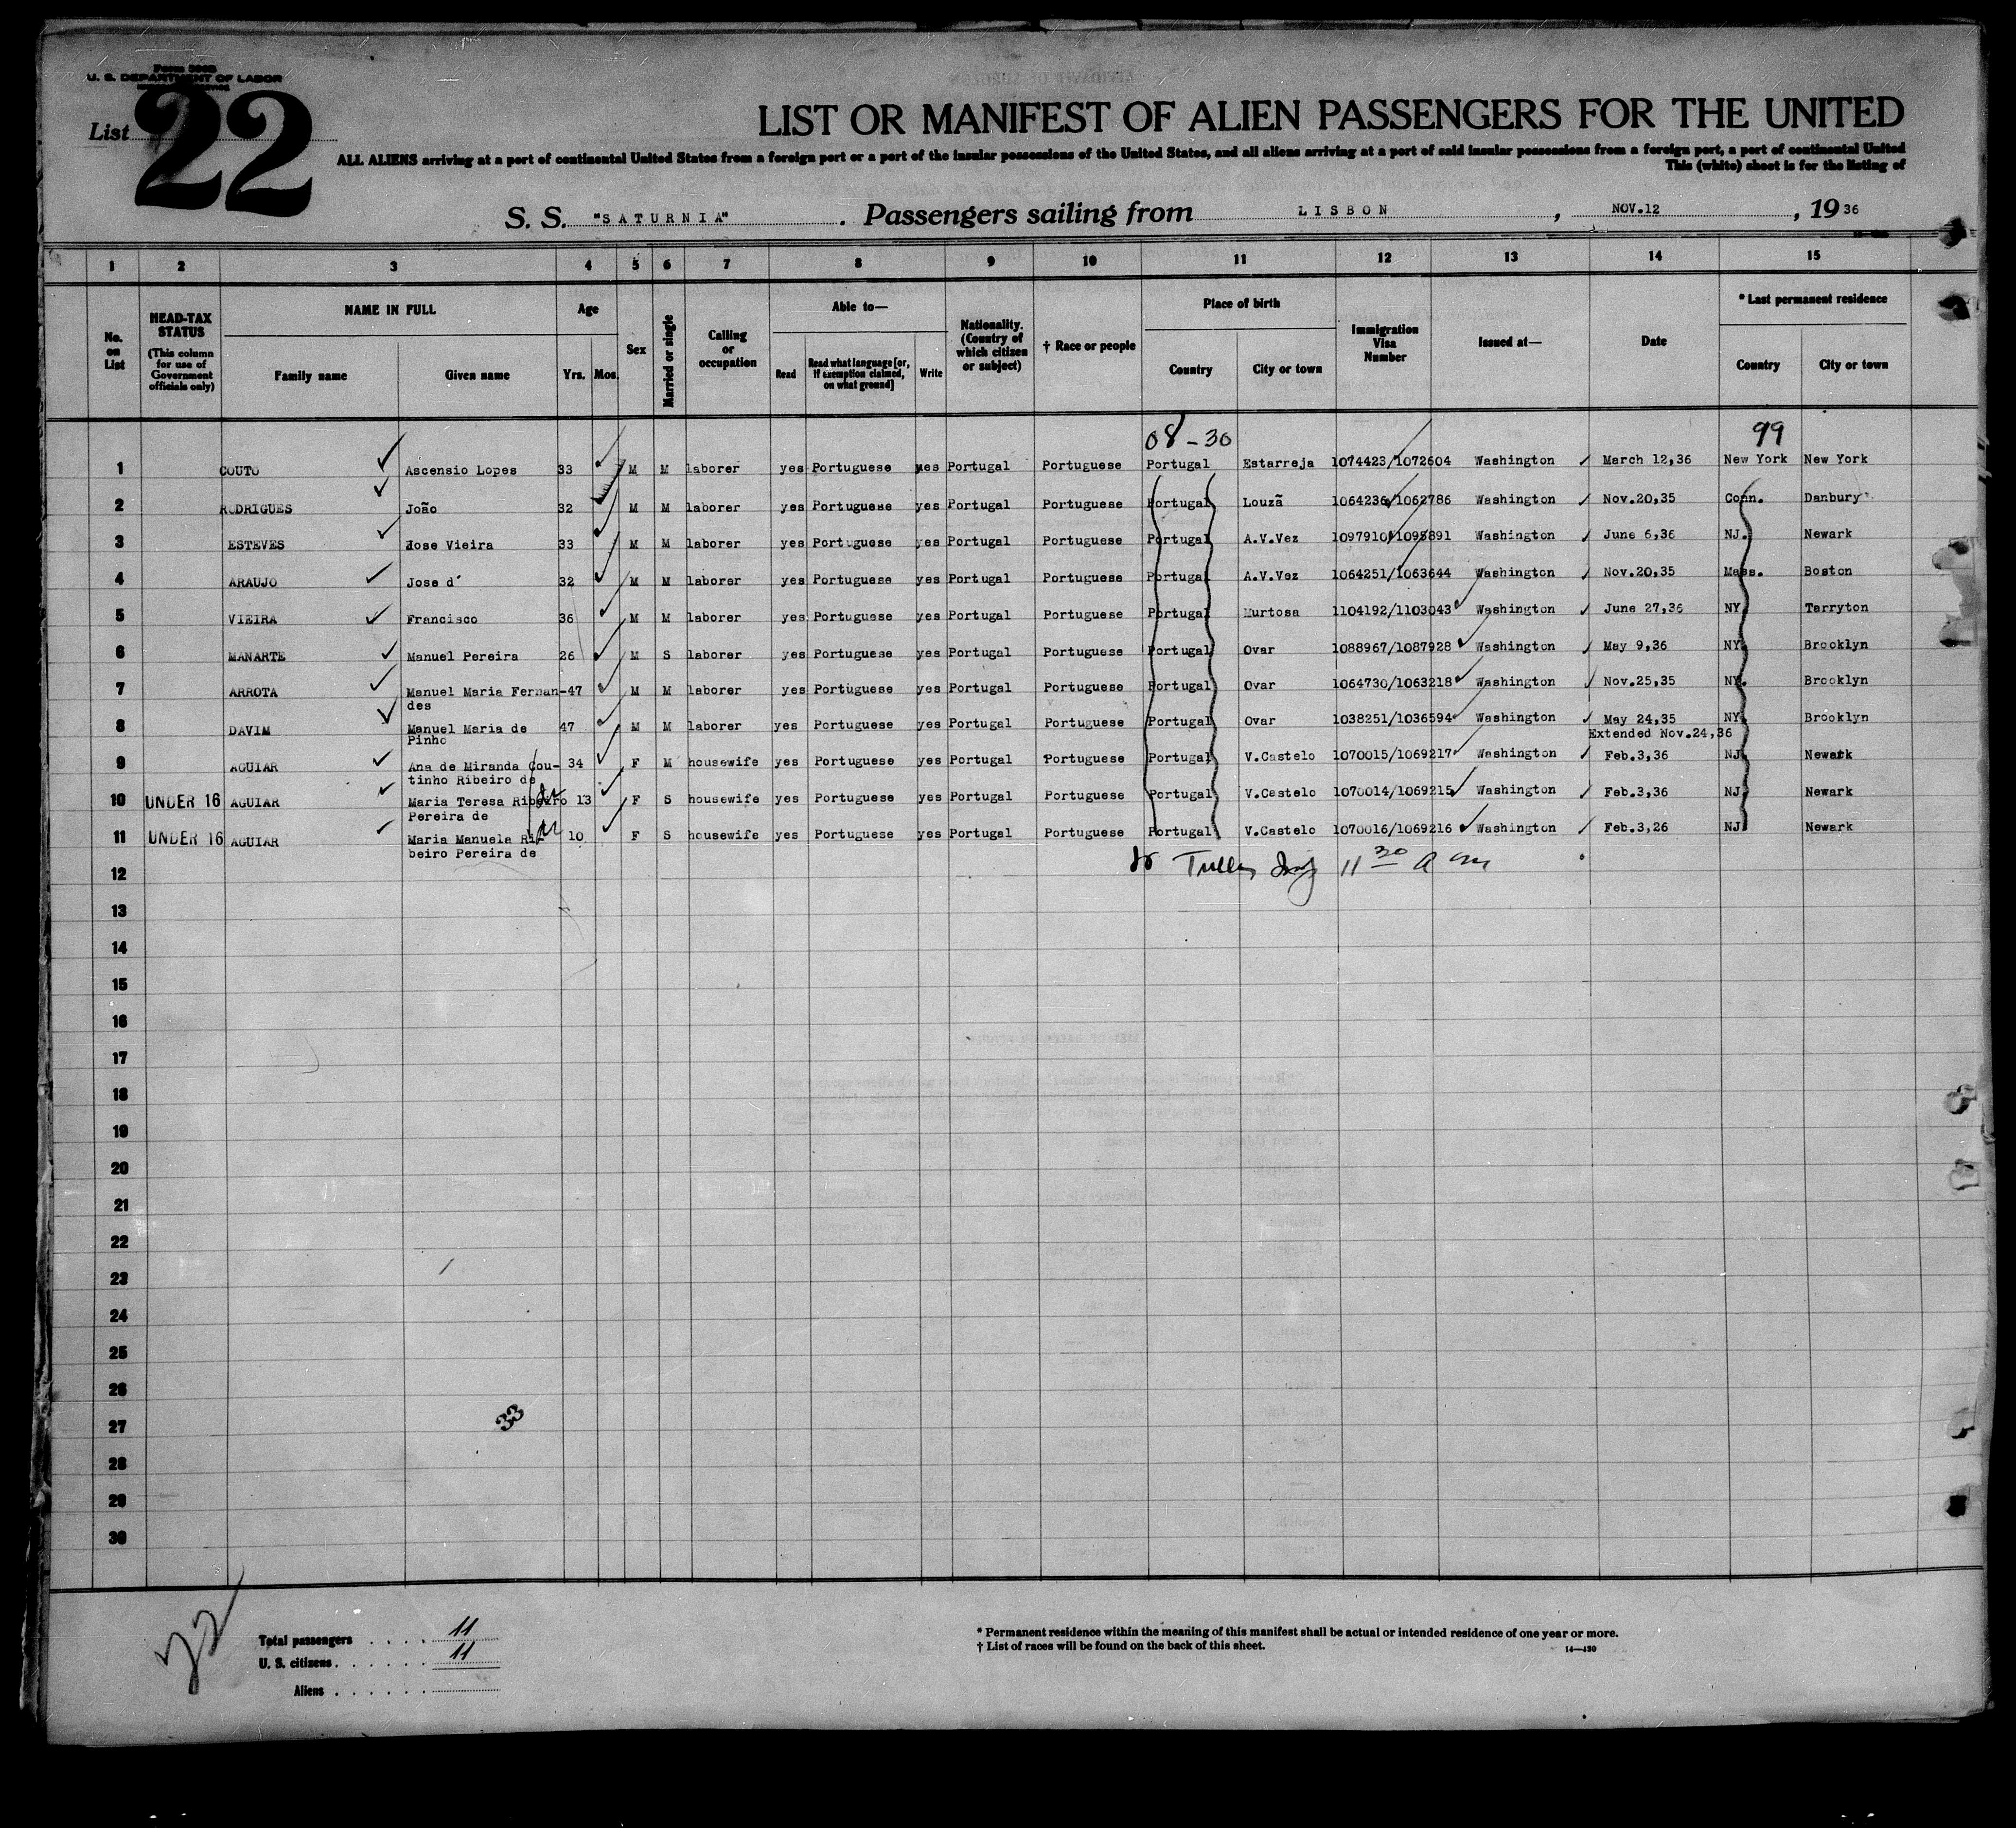 Form 500B
U. S. DEPARTMENT OF LABOR
List 22
LIST OR MANIFEST OF ALIEN PASSENGERS FOR THE UNITED
ALL ALIENS arriving at a port of continental United States from a foreign port or a port of the insular possessions of the United States, and all aliens arriving at a port of said insular possessions from a foreign port, a port of continental United
This (white) sheet is for the listing of
S. S. "SATURNIA". Passengers sailing from LISBON, NOV.12, 1936
1 2 3 4 5 6 7 8 9 10 11 12 13 14 15
No. on List HEAD-TAX STATUS (This column for use of Government officials only) NAME IN FULL Family name Given name Age Yrs. Mos. Sex Married or single Calling or occupation Able to— Read Read what language [or, if exemption claimed, on what ground] Write Nationality. (Country of which citizen or subject) † Race or people Place of birth Country City or town Immigration Visa Number Issued at— Date * Last permanent residence Country City or town
08-30 99
1 COUTO Ascensio Lopes 33 M M laborer yes Portuguese yes Portugal Portuguese Portugal Estarreja 1074423/1072604 Washington March 12,36 New York New York
2 RODRIGUES João 32 M M laborer yes Portuguese yes Portugal Portuguese Portugal Louzã 1064236/1062786 Washington Nov.20,35 Conn. Danbury
3 ESTEVES Jose Vieira 33 M M laborer yes Portuguese yes Portugal Portuguese Portugal A.V.Vez 1097910/1095891 Washington June 6,36 NJ. Newark
4 ARAUJO Jose d' 32 M M laborer yes Portuguese yes Portugal Portuguese Portugal A.V.Vez 1064251/1063644 Washington Nov.20,35 Mass. Boston
5 VIEIRA Francisco 36 M M laborer yes Portuguese yes Portugal Portuguese Portugal Murtosa 1104192/1103043 Washington June 27,36 NY Tarryton
6 MANARTE Manuel Pereira 26 M S laborer yes Portuguese yes Portugal Portuguese Portugal Ovar 1088967/1087928 Washington May 9,36 NY Brooklyn
7 ARROTA Manuel Maria Fernan- 47 M M laborer yes Portuguese yes Portugal Portuguese Portugal Ovar 1064730/1063218 Washington Nov.25,35 NY. Brooklyn
des
8 DAVIM Manuel Maria de 47 M M laborer yes Portuguese yes Portugal Portuguese Portugal Ovar 1038251/1036594 Washington May 24,35 NY Brooklyn
Pinho Extended Nov.24,36
9 AGUIAR Ana de Miranda Cou- 34 F M housewife yes Portuguese yes Portugal Portuguese Portugal V.Castelo 1070015/1069217 Washington Feb.3,36 NJ Newark
tinho Ribeiro de
10 UNDER 16 AGUIAR Maria Teresa Ribeiro 13 F S housewife yes Portuguese yes Portugal Portuguese Portugal V.Castelo 1070014/1069215 Washington Feb.3,36 NJ Newark
Pereira de
11 UNDER 16 AGUIAR Maria Manuela Ri- 10 F S housewife yes Portuguese yes Portugal Portuguese Portugal V.Castelo 1070016/1069216 Washington Feb.3,26 NJ Newark
beiro Pereira de
12 11 30 a m
13
14
15
16
17
18
19
20
21
22
23
24
25
26
27
33
28
29
30
22
Total passengers . . . . 11
U. S. citizens . . . . . . 11
Aliens . . . . . .
* Permanent residence within the meaning of this manifest shall be actual or intended residence of one year or more.
† List of races will be found on the back of this sheet.
14—430